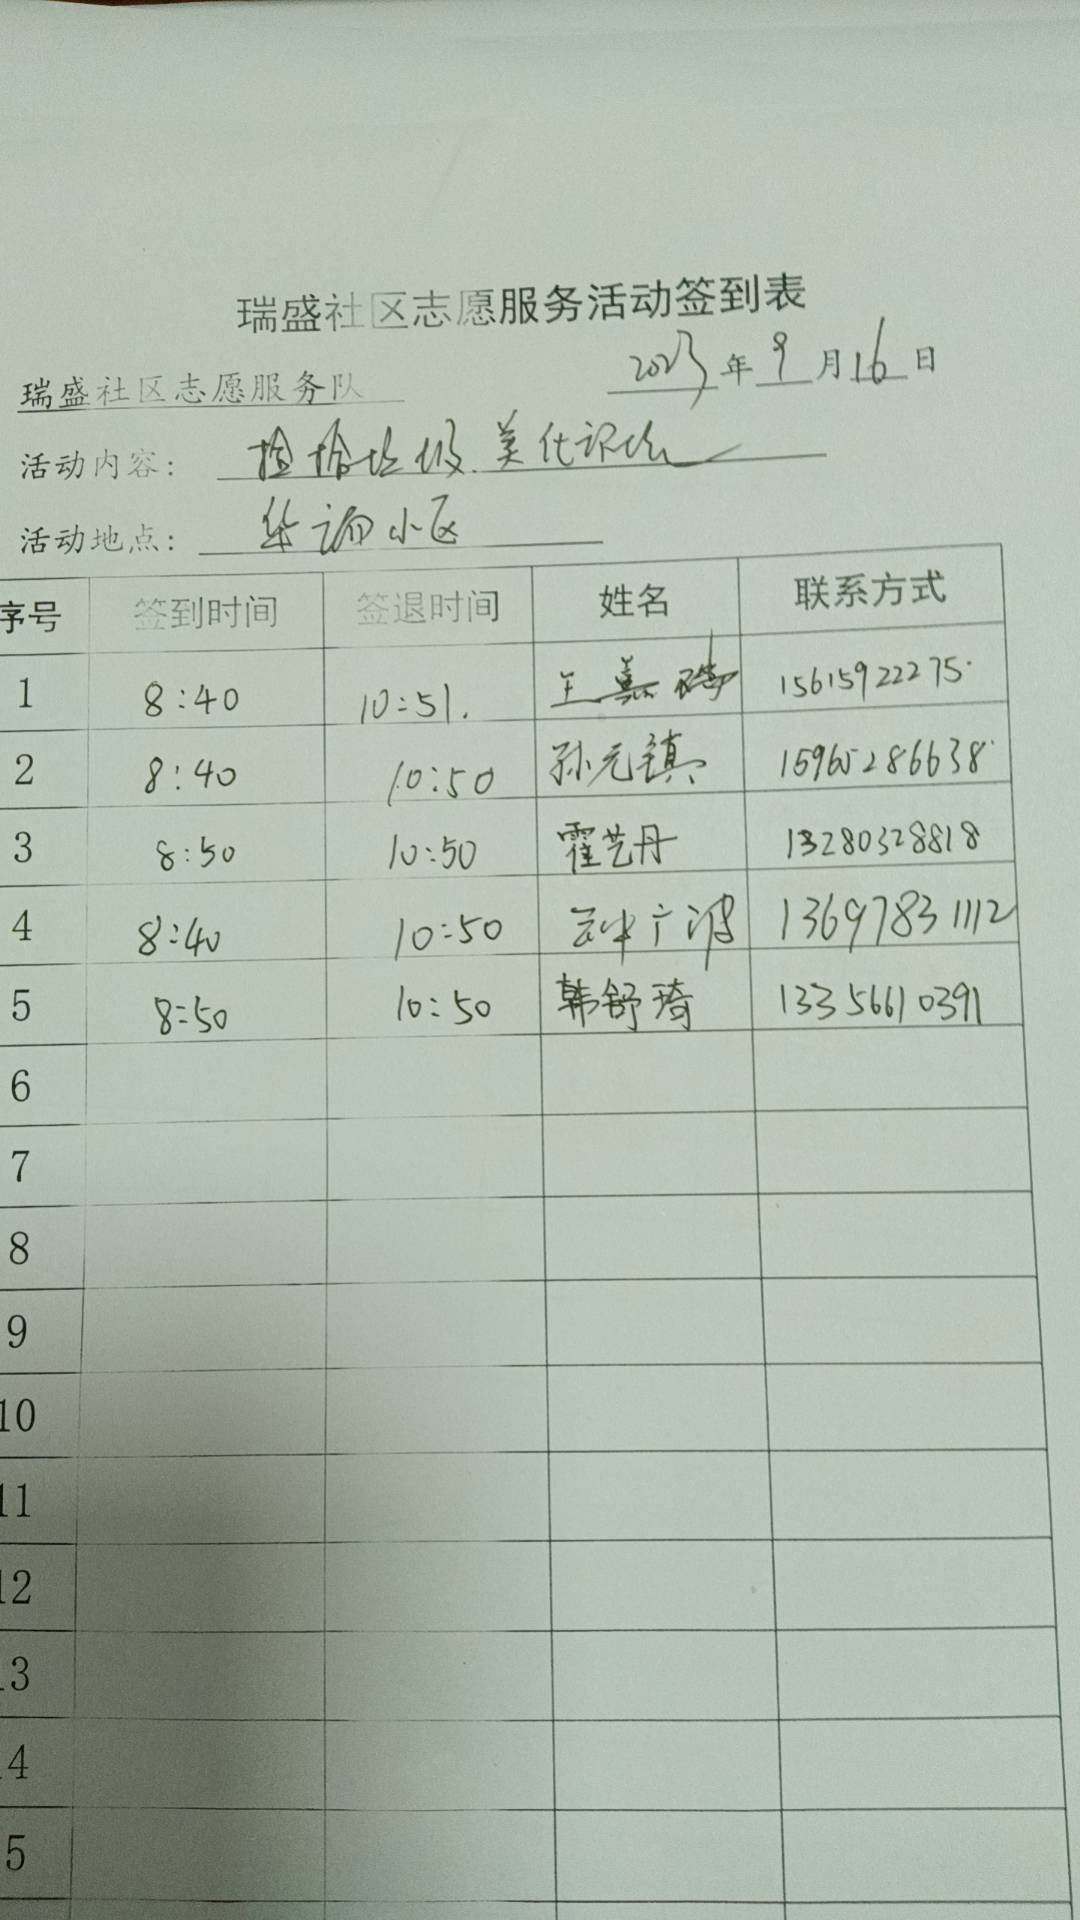 瑞盛社区志愿服务活动签到表
瑞盛社区志愿服务队 2023年9月16日
活动内容: 捡拾垃圾 美化
活动地点: 华 小区
序号 签到时间 签退时间 姓名 联系方式
1 8:40 10:51. 王嘉 15615922275
2 8:40 10:50 孙元镇 15965286638
3 8:50 10:50 霍艺丹 13280328818
4 8:40 10:50 广波 13697831112
5 8:50 10:50 韩舒琦 13356610391
6
7
8
9
10
11
12
3
4
5